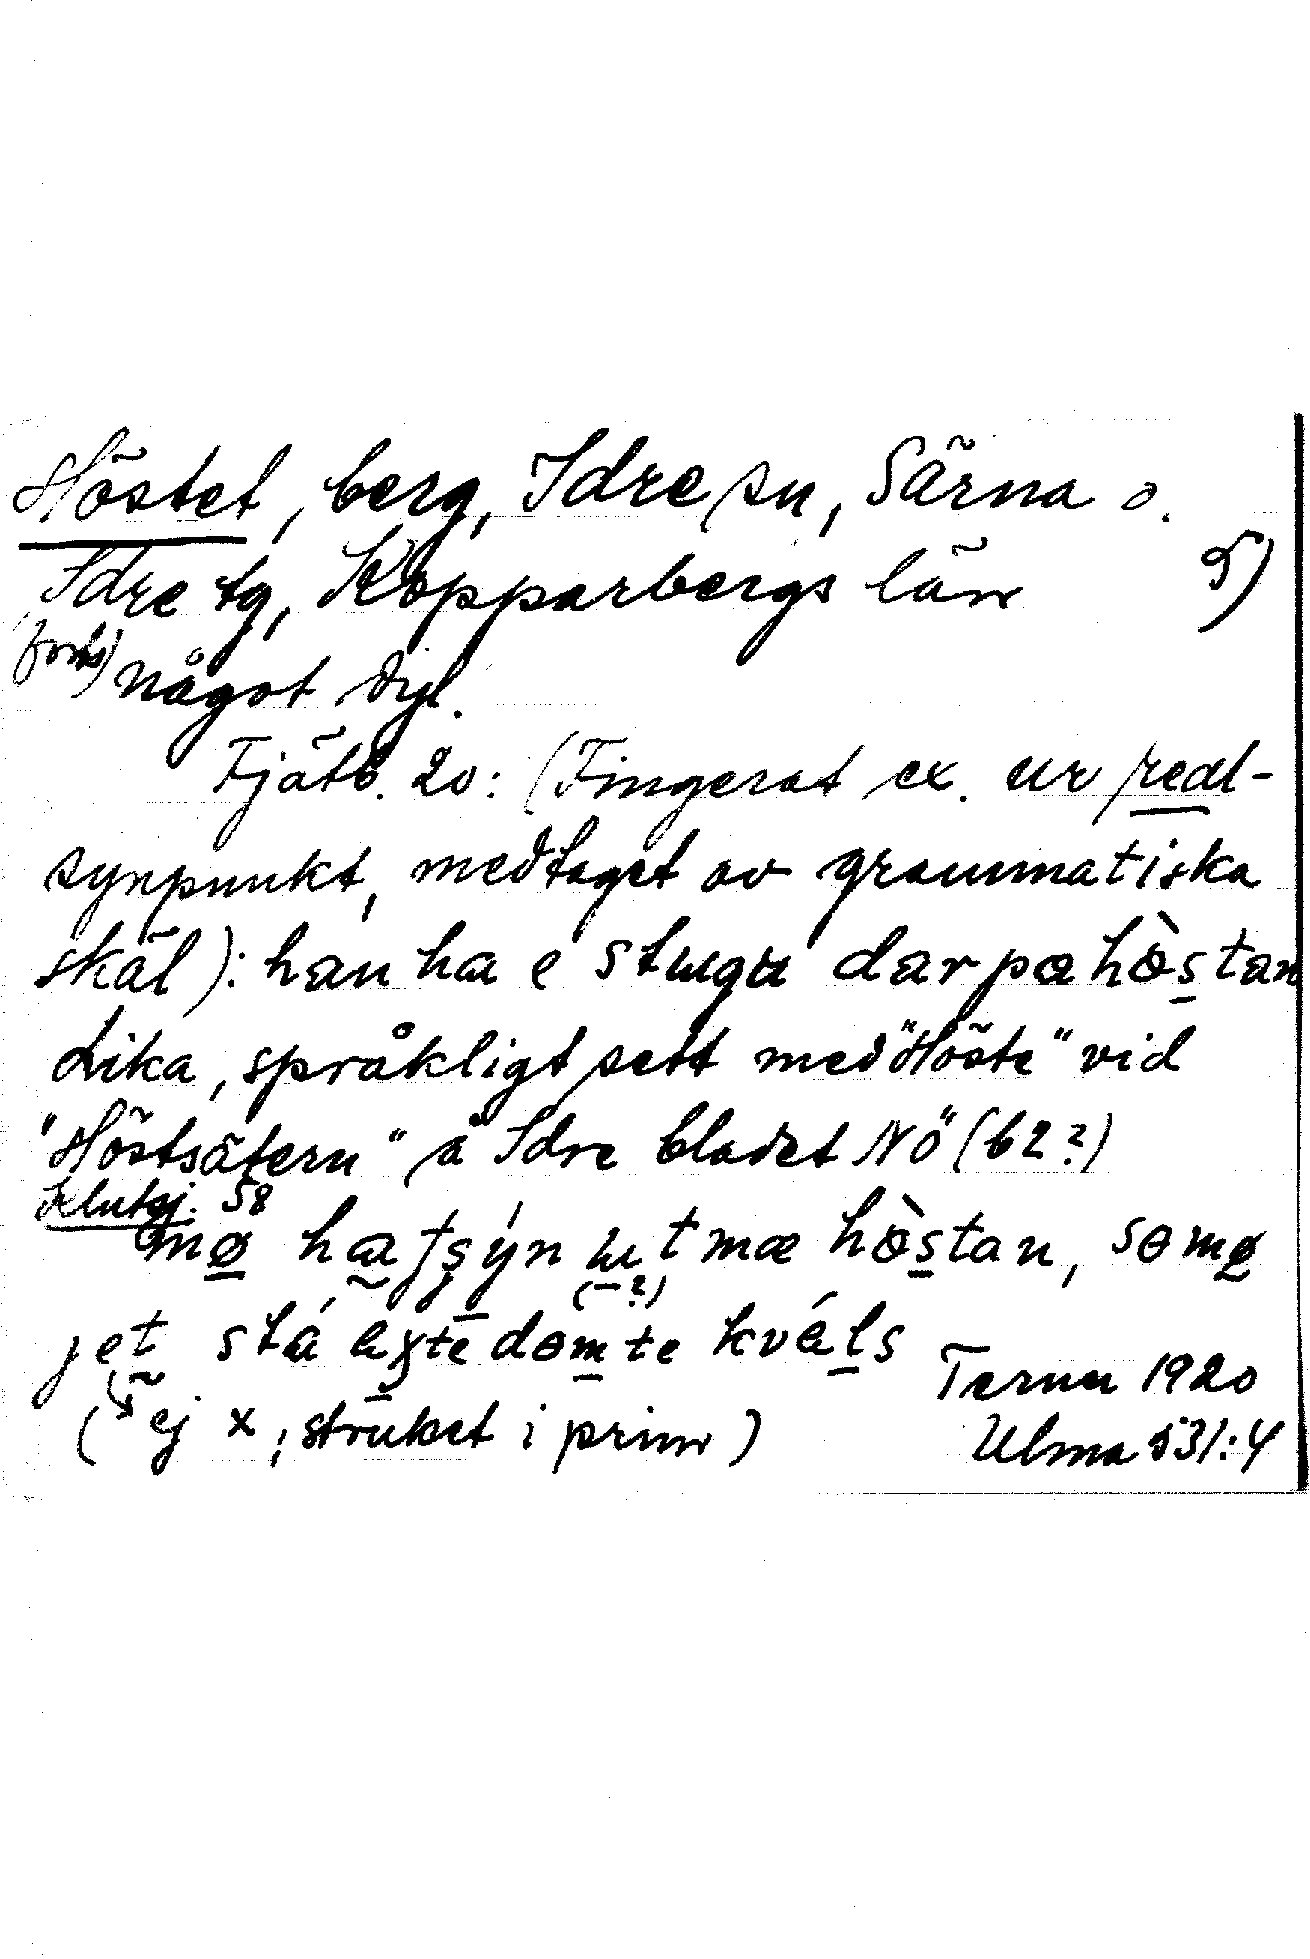 Höstet, berg, Idre sn, Särna o.
Idre tg, Kopparbergs län 5)
(forts) något dyl.
Fjätb. 20: (Fingerat ex. ur real-
synpunkt, medtaget av grammatiska
skäl): han ha e stuga dar pa hòstan
Lika, språkligt sett med "Höste" vid
"Höstsätern" å Idre bladet NÖ (62?)
58
mø ha sýn ut mæ hòstan, somø
(–?)
jet stá domte kváls
(ej x, struket i prim) Terner 1920
Ulma 531:4